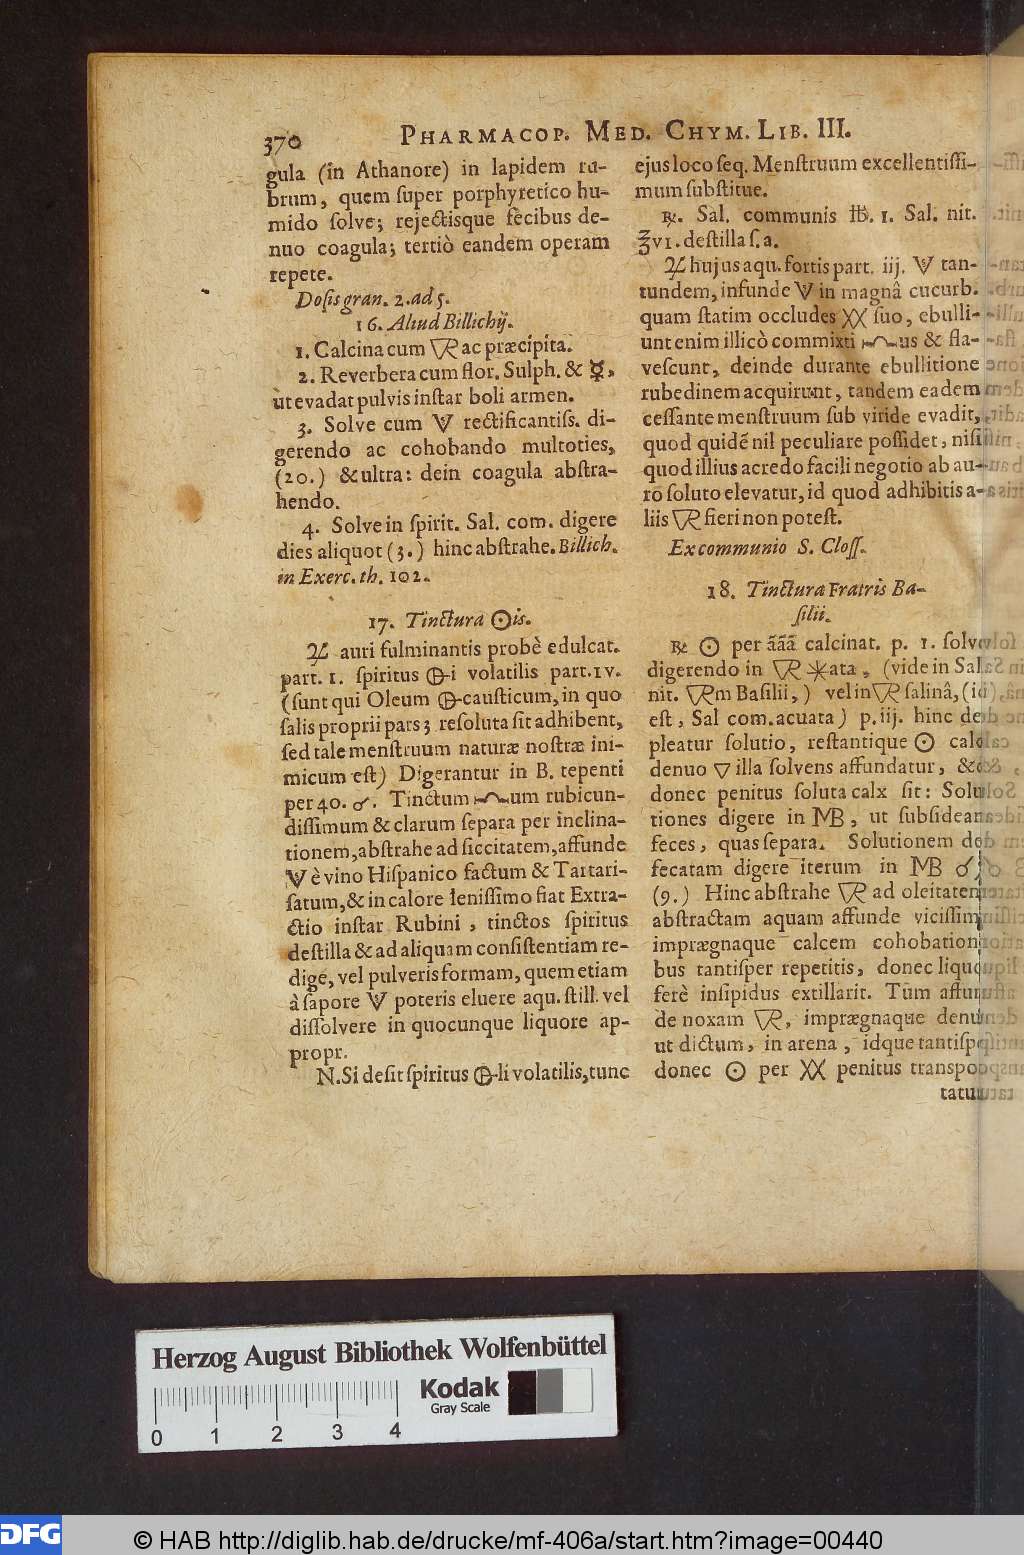 370 PHARMACOP. MED. CHYM. LIB. III.
gula (in Athanore) in lapidem ru-
brum, quem ſuper porphyretico hu-
mido ſolve; rejectisque fecibus de-
nuo coagula; tertiò eandem operam
repete.
Doſis gran. 2. ad 5.
16. Aliud Billichij.
1. Calcina cum 🜆 ac præcipita.
2. Reverbera cum flor. Sulph. & ☿,
ùt evadat pulvis inſtar boli armen.
3. Solve cum 🜈 rectificantiſſ. di-
gerendo ac cohobando multoties,
(20.) & ultra: dein coagula abſtra-
hendo.
4. Solve in ſpirit. Sal. com. digere
dies aliquot (3.) hinc abſtrahe. Billich.
in Exerc. th. 102.
17. Tinctura ☉is.
♃ auri fulminantis probè edulcat.
part. 1. ſpiritus 🜕-i volatilis part. IV.
(ſunt qui Oleum 🜕-cauſticum, in quo
ſalis proprii pars 3 reſoluta ſit adhibent,
ſed tale menſtruum naturæ noſtræ ini-
micum eſt) Digerantur in B. tepenti
per 40. ♂. Tinctum 🝞um rubicun-
diſſimum & clarum ſepara per inclina-
tionem, abſtrahe ad ſiccitatem, affunde
🜈 è vino Hiſpanico factum & Tartari-
ſatum, & in calore leniſſimo fiat Extra-
ctio inſtar Rubini, tinctos ſpiritus
deſtilla & ad aliquam conſiſtentiam re-
dige, vel pulveris formam, quem etiam
à ſapore 🜈 poteris eluere aqu. ſtill. vel
diſſolvere in quocunque liquore ap-
propr.
N. Si deſit ſpiritus 🜕-li volatilis, tunc
ejus loco ſeq. Menſtruum excellentiſſi-
mum ſubſtitue.
℞. Sal. communis ℔. 1. Sal. nit.
℥vi. deſtilla ſ. a.
♃ hujus aqu. fortis part. iij. 🜈 tan-
tundem, infunde 🜈 in magnâ cucurb.
quam ſtatim occludes XX ſuo, ebulli-
unt enim illicò commixti 🝞us & fla-
veſcunt, deinde durante ebullitione
rubedinem acquirunt, tandem eadem
ceſſante menſtruum ſub viride evadit,
quod quidē nil peculiare poſſidet, niſi
quod illius acredo facili negotio ab au-
ro ſoluto elevatur, id quod adhibitis a-
liis 🜆 fieri non poteſt.
Ex communio S. Cloſſ.
18. Tinctura Fratris Ba-
ſilii.
℞ ☉ per ããã calcinat. p. 1. ſolve
digerendo in 🜆 🞶ata, (vide in Sal
nit. 🜆m Baſilii,) vel in 🜆 ſalinâ, (id
eſt, Sal com. acuata) p. iij. hinc de
pleatur ſolutio, reſtantique ☉ calc
denuo 🜄 illa ſolvens affundatur, &
donec penitus ſoluta calx ſit: Solu
tiones digere in MB, ut ſubſideant
feces, quas ſepara. Solutionem
fecatam digere iterum in MB ♂
(9.) Hinc abſtrahe 🜆 ad oleitatem
abſtractam aquam affunde viciſſim
imprægnaque calcem cohobation
bus tantiſper repetitis, donec
ferè inſipidus extillarit. Tùm
de noxam 🜆, imprægnaque denu
ut dictum, in arena, idque tantiſp
donec ☉ per XX penitus transpo
tatu
Herzog August Bibliothek Wolfenbüttel
Kodak
Gray Scale
0 1 2 3 4
DFG
© HAB http://diglib.hab.de/drucke/mf-406a/start.htm?image=00440